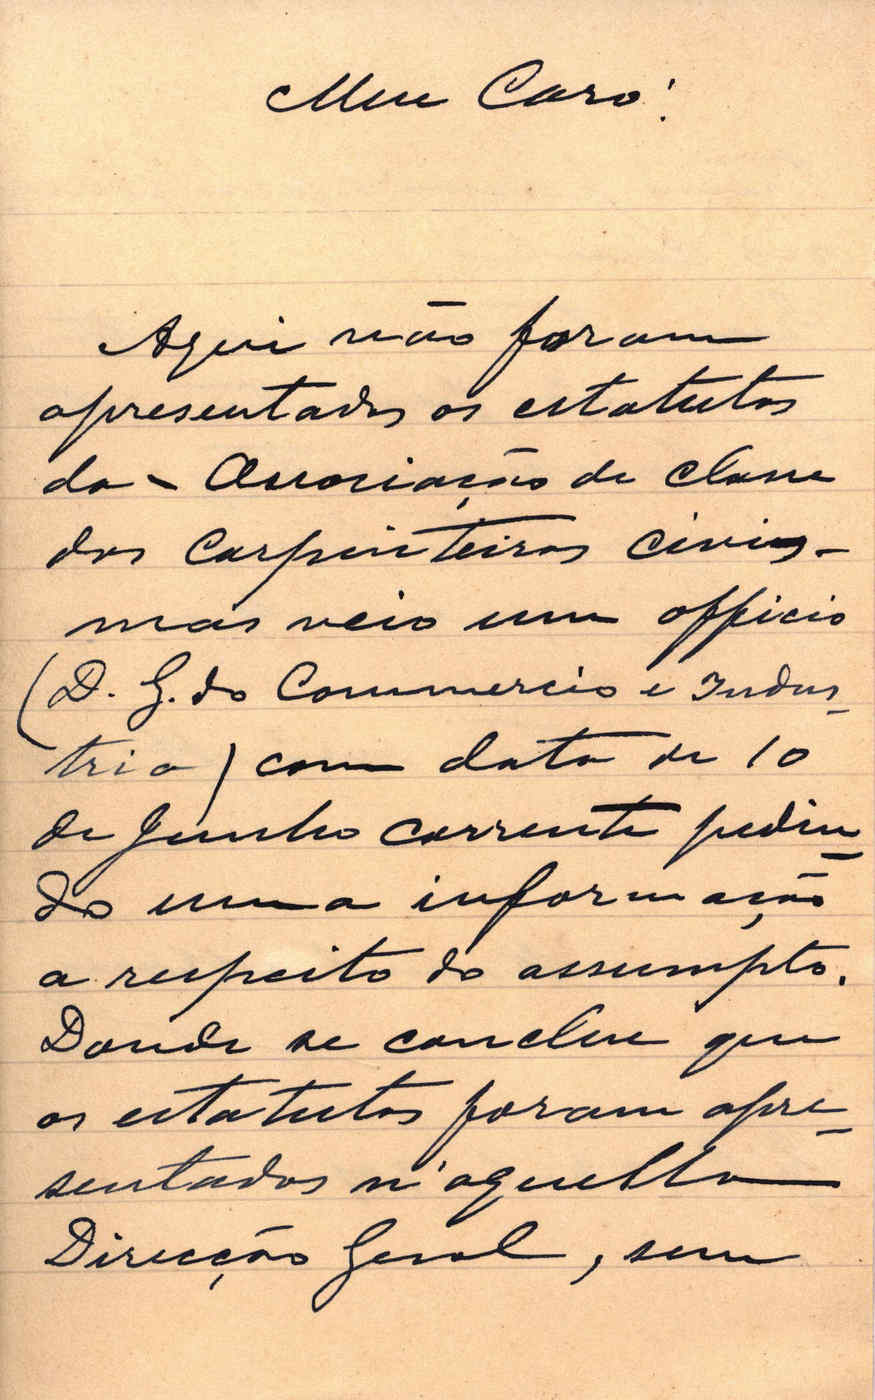 Meu Caro!
Aqui não foram
apresentados os estatutos
da - Associação de classe
dos Carpinteiros civis -
mas veio um officio
(D. G. do Commercio e Indus-
tria) com data de 10
de Junho corrente pedin-
do uma informação
a respeito do assumpto.
Donde se conclue que
os estatutos foram apre-
sentados n'aquella
Direcção Geral, sem